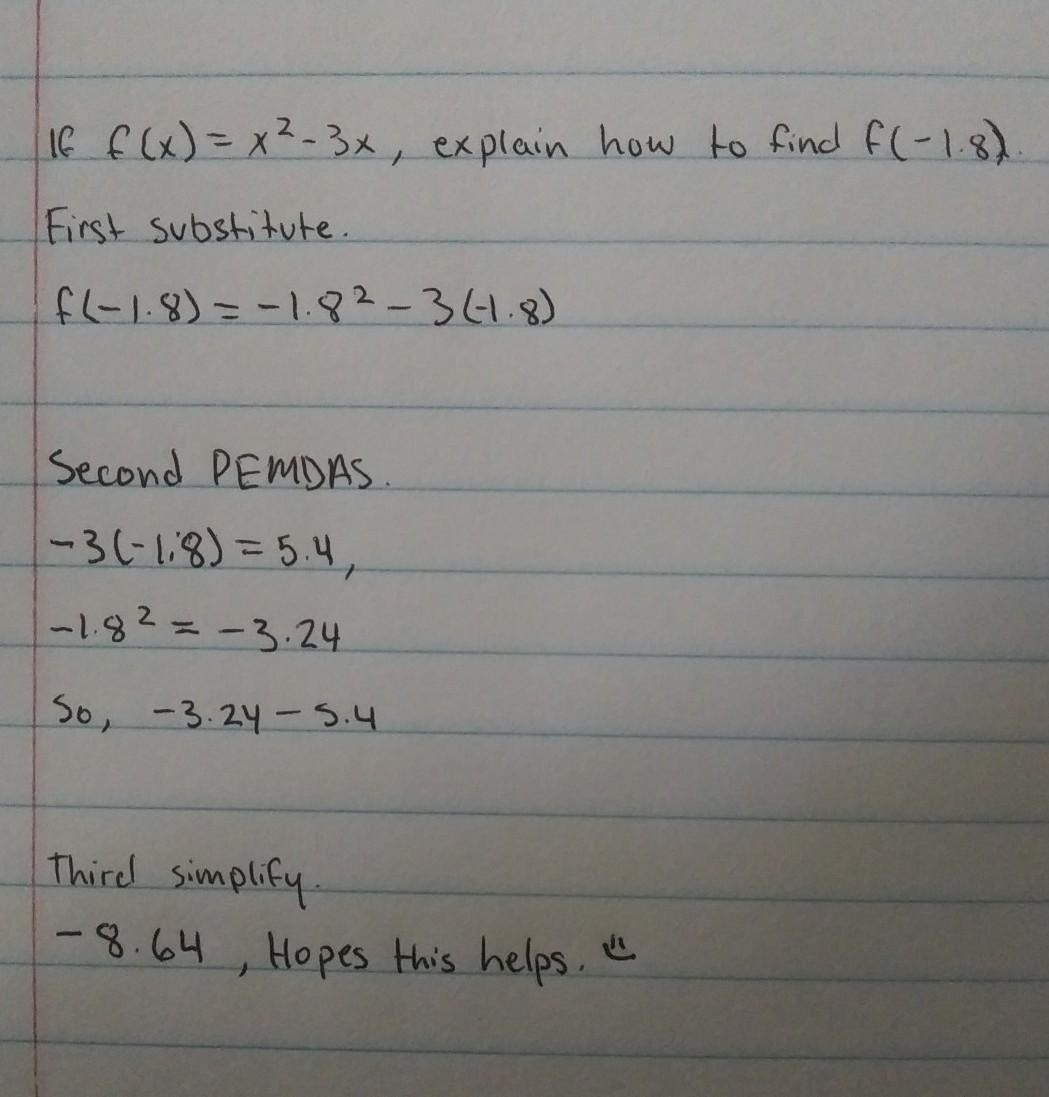 If f(x) = x² - 3x, explain how to find f(-1.8).
First substitute.
f(-1.8) = -1.8² - 3(-1.8)
Second PEMDAS.
-3(-1.8) = 5.4,
-1.8² = -3.24
So, -3.24 - 5.4
Third simplify.
-8.64, Hopes this helps.